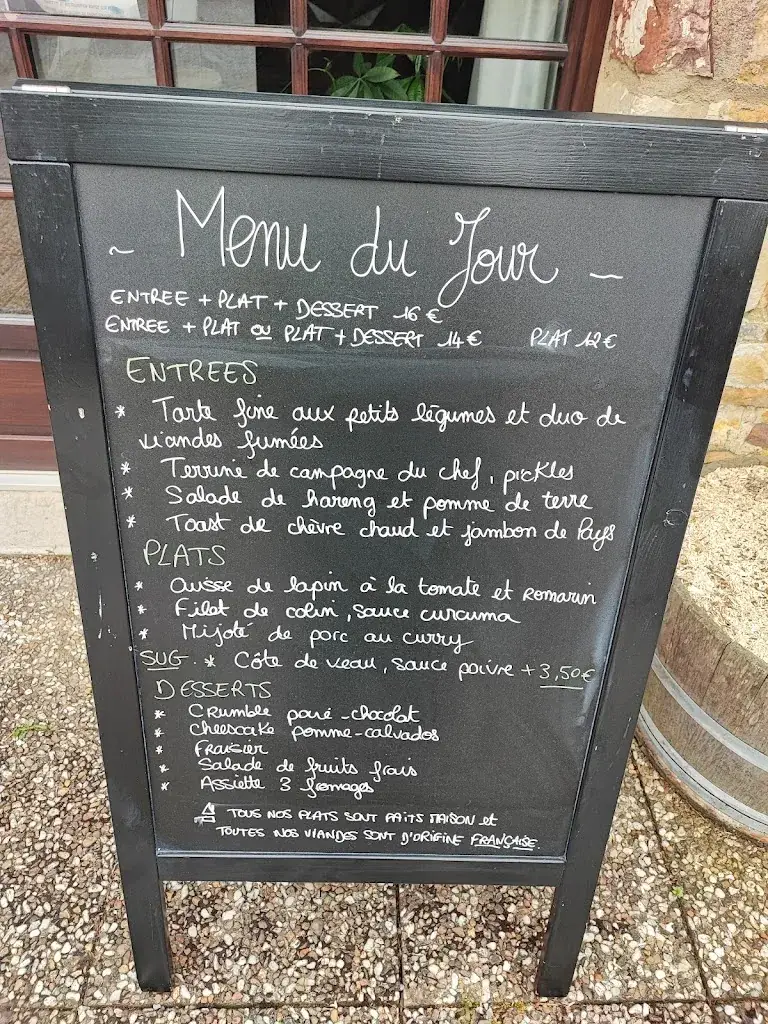 ~ Menu du Jour ~
ENTREE + PLAT + DESSERT 16 €
ENTREE + PLAT OU PLAT + DESSERT 14 € PLAT 12 €
ENTREES
* Tarte fine aux petits légumes et duo de
viandes fumées
* Terrine de campagne du chef, pickles
* Salade de hareng et pomme de terre
* Toast de chèvre chaud et jambon de Pays
PLATS
* Cuisse de lapin à la tomate et Romarin
* Filet de colin, sauce curcuma
* Mijoté de porc au curry
SUG. * Côte de veau, sauce poivre + 3,50€
DESSERTS
* Crumble poire-chocolat
* Cheescake pomme-calvados
* Fraisier
* Salade de fruits frais
* Assiette 3 fromages
TOUS NOS PLATS SONT FAITS MAISON et
TOUTES NOS VIANDES SONT D'ORIGINE FRANÇAISE.